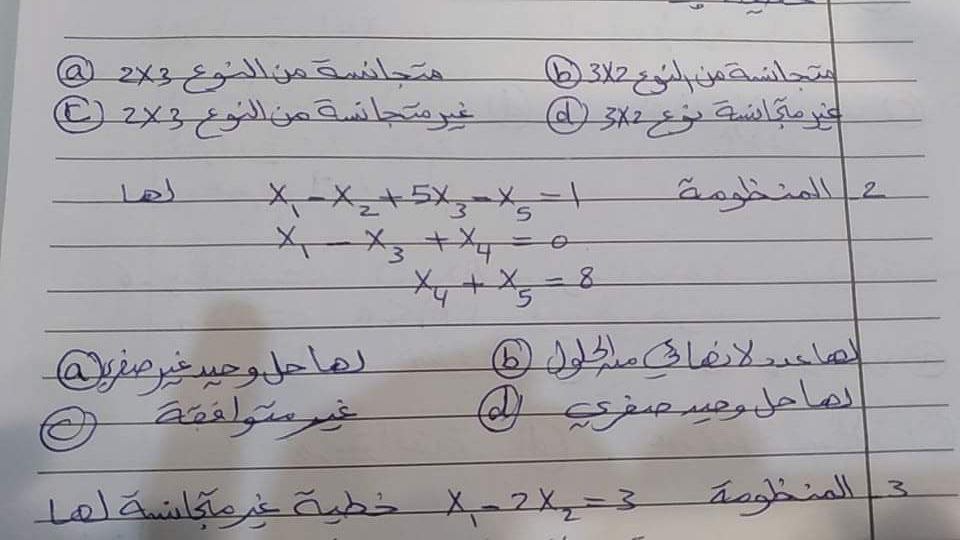 ⓐ متجانسة من النوع 2x3 ⓑ متجانسة من النوع 3x2
ⓒ غير متجانسة من النوع 2x3 ⓓ غير متجانسة نوع 3x2
2- المنظومة x₁ - x₂ + 5x₃ - x₅ = 1 لها
x₁ - x₃ + x₄ = 0
x₄ + x₅ = 8
ⓐ لها حل وحيد غير صفري ⓑ لها عدد لانهائي من الحلول
ⓒ غير متوافقة ⓓ لها حل وحيد صفري
3- المنظومة x₁ - 2x₂ = 3 خطية غير متجانسة لها